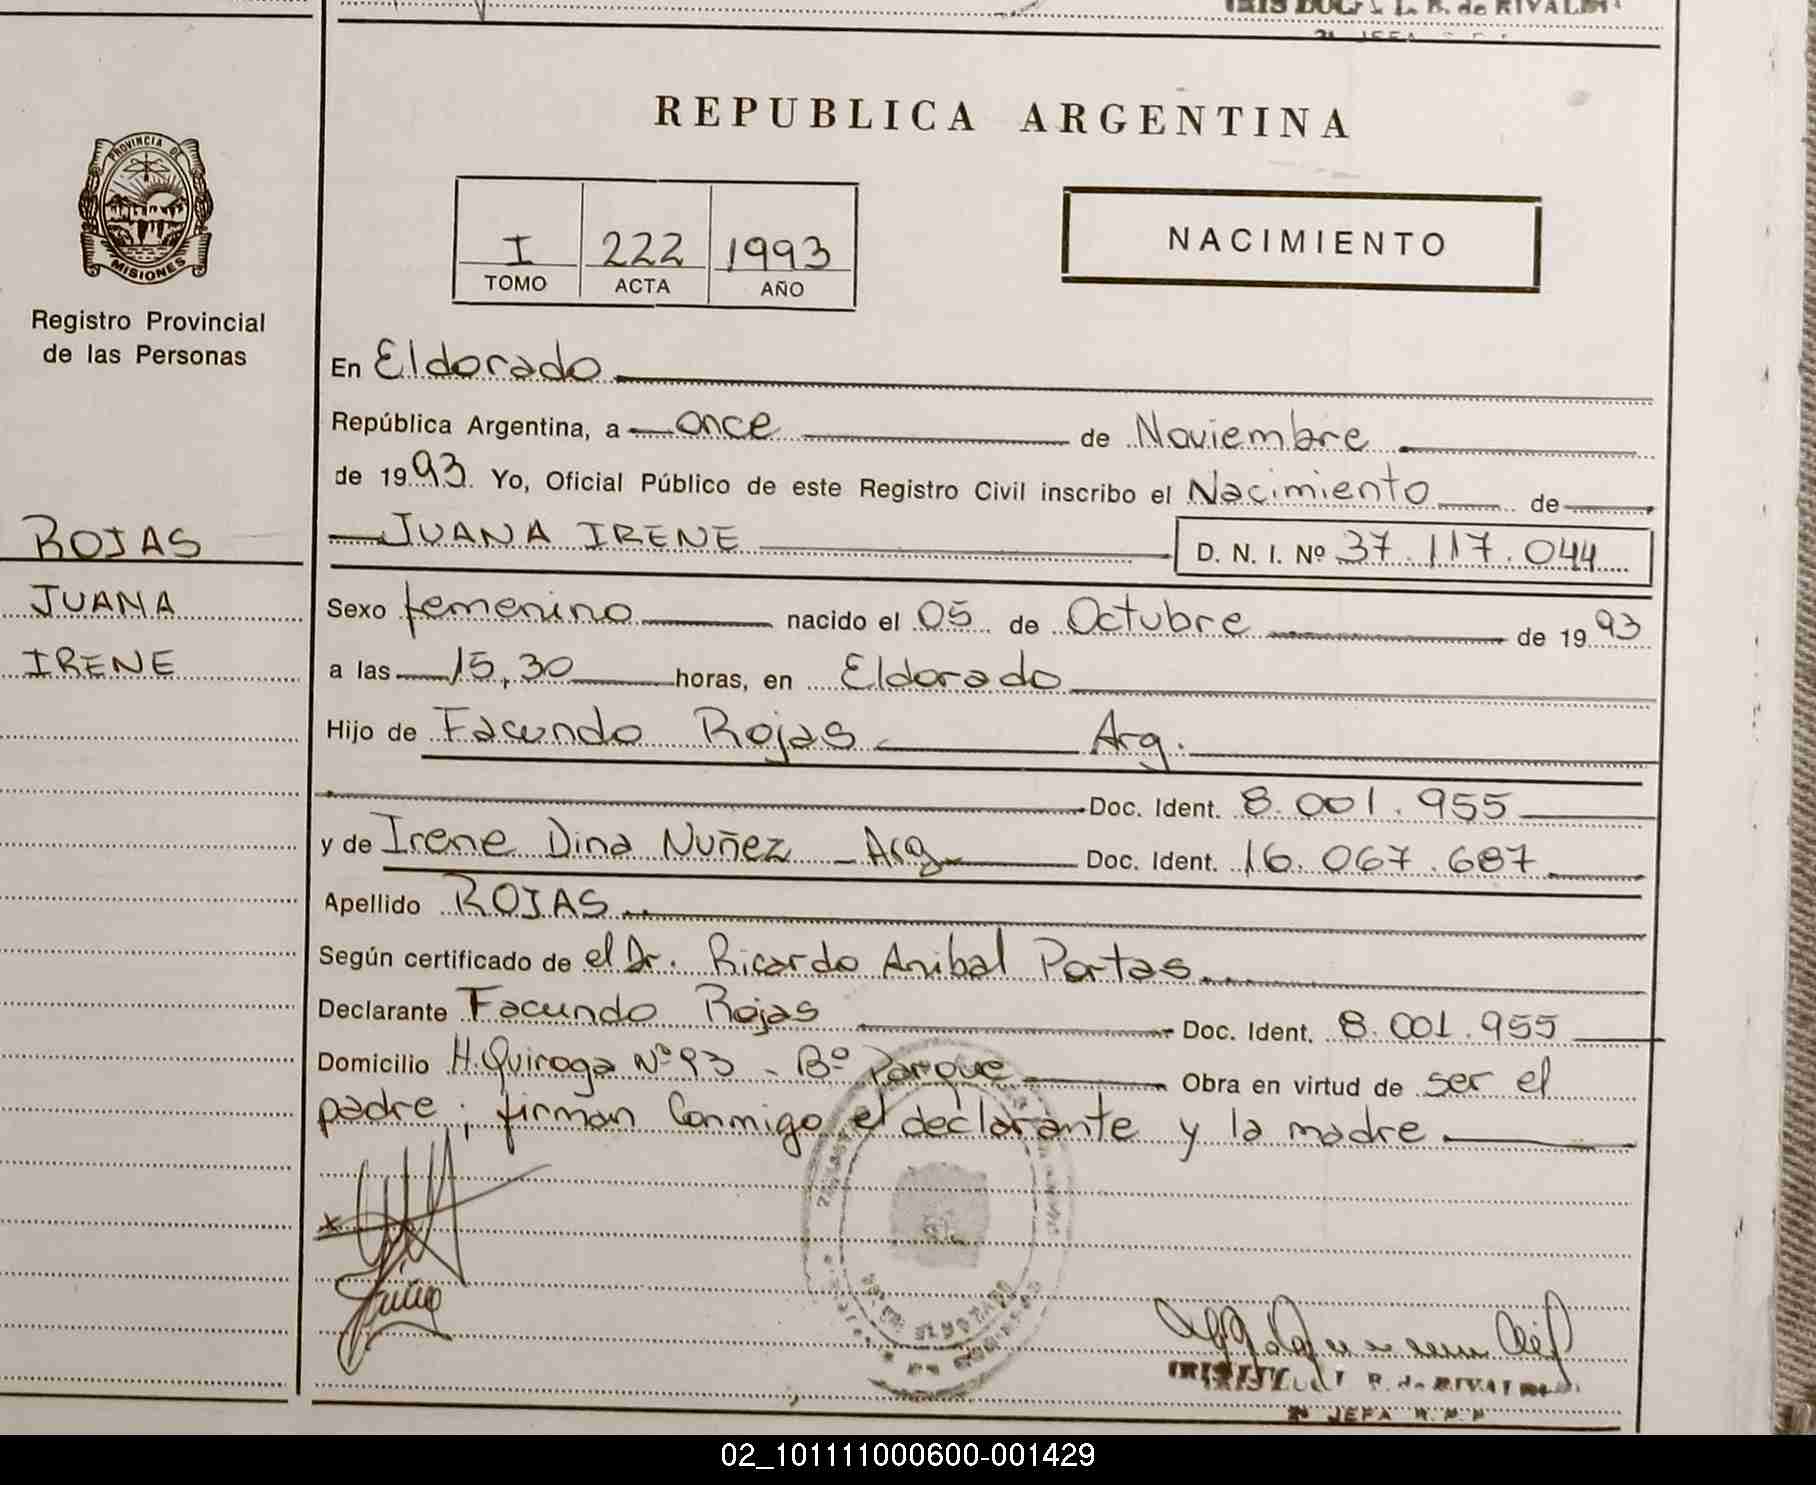 REPUBLICA ARGENTINA
PROVINCIA DE
MISIONES
Registro Provincial
de las Personas
I 222 1993
TOMO ACTA AÑO
NACIMIENTO
En Eldorado
República Argentina, a once de Noviembre
de 1993 Yo, Oficial Público de este Registro Civil inscribo el Nacimiento de
JUANA IRENE D. N. I. Nº 37.117.044
ROJAS
JUANA
IRENE
Sexo femenino nacido el 05 de Octubre de 1993
a las 15,30 horas, en Eldorado
Hijo de Facundo Rojas Arg.
Doc. Ident. 8.001.955
y de Irene Dina Nuñez - Arg Doc. Ident. 16.067.687
Apellido ROJAS
Según certificado de el Dr. Ricardo Anibal Portas
Declarante Facundo Rojas Doc. Ident. 8.001.955
Domicilio H. Quiroga Nº 93 - Bº Parque Obra en virtud de ser el
padre; firman conmigo el declarante y la madre
JEFA
02_101111000600-001429